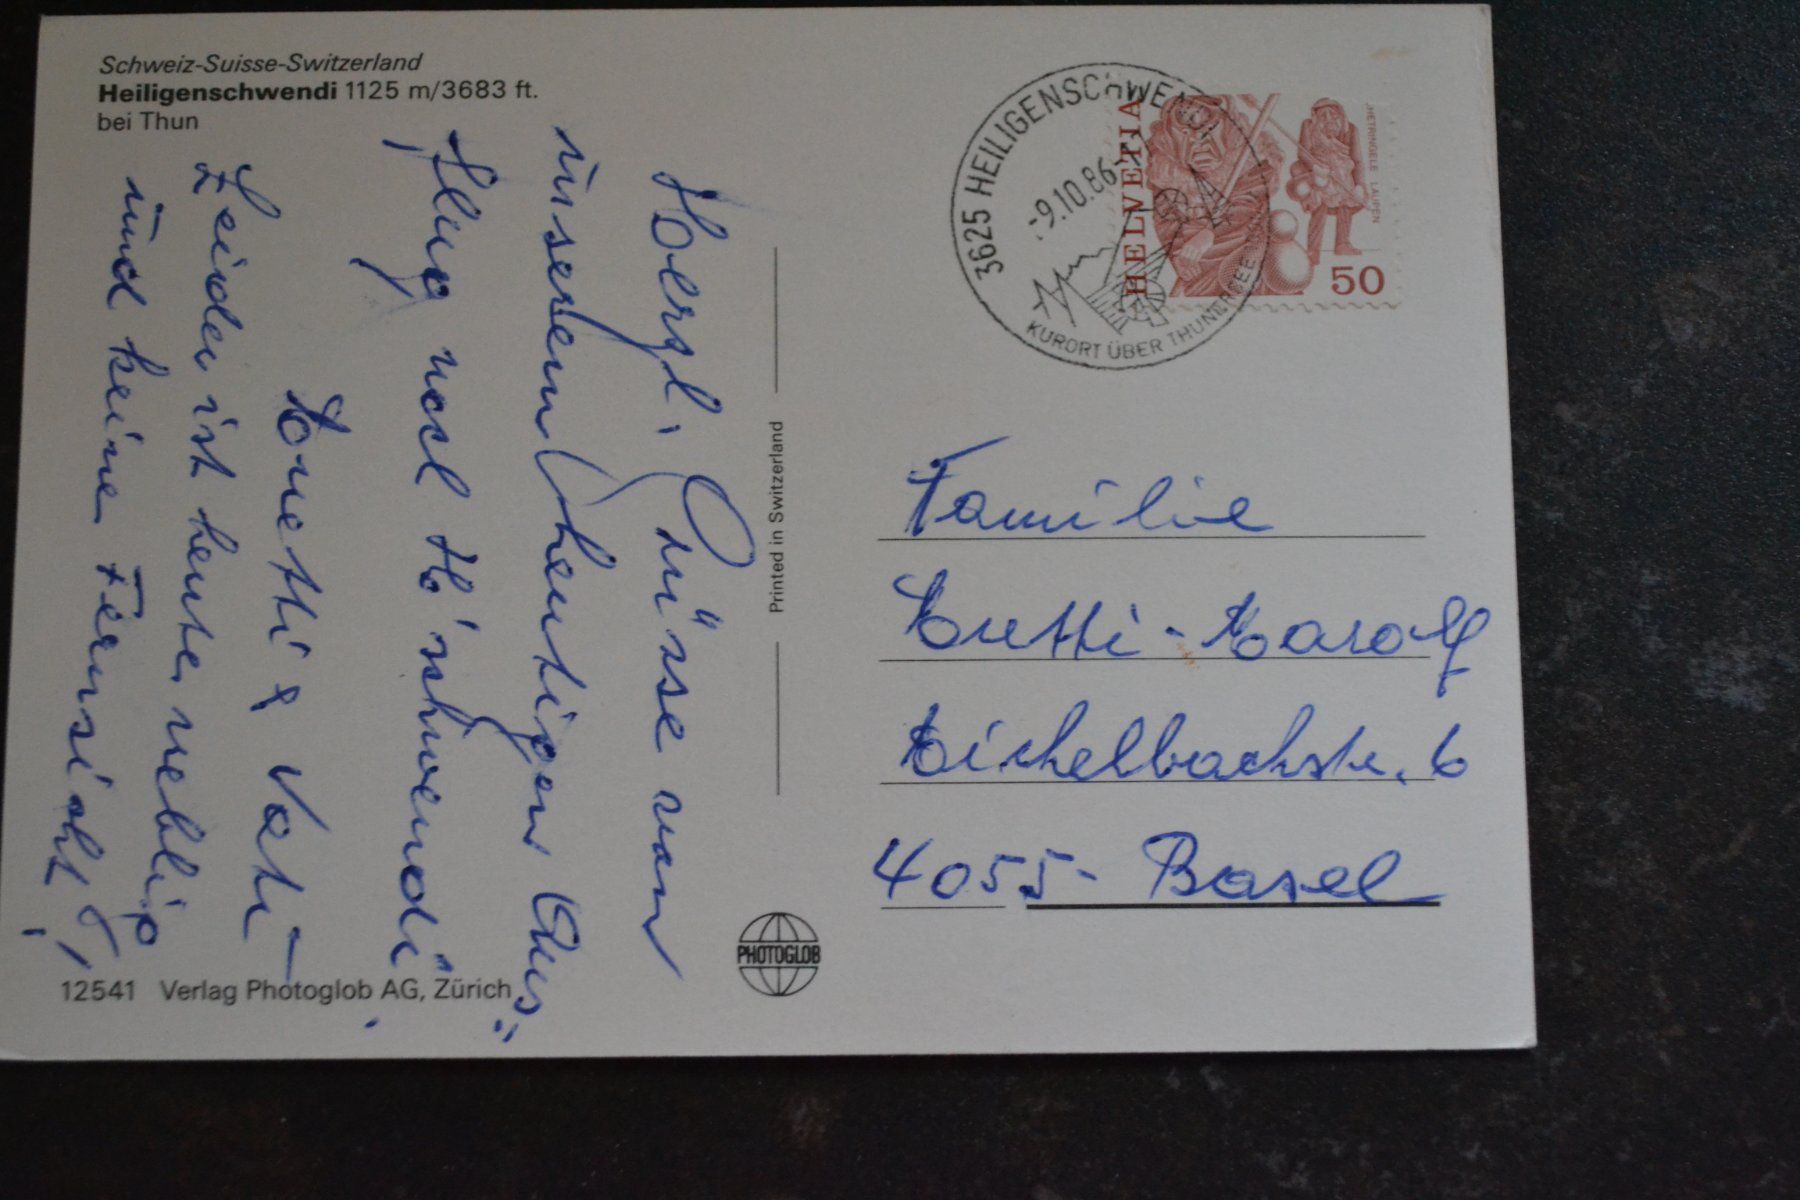 Schweiz-Suisse-Switzerland
Heiligenschwendi 1125 m/3683 ft.
bei Thun
Herzl. Grüsse von
unserem heutigen "Aus-
flug nach H'schwendi".
Vati
Leider ist heute neblig
und keine Fernsicht!
Printed in Switzerland
12541 Verlag Photoglob AG, Zürich
PHOTOGLOB
3625 HEILIGENSCHWENDI
-9.10.86-
KURORT ÜBER THUNERSEE
HELVETIA
LAUPEN
50
Familie
4055- Basel